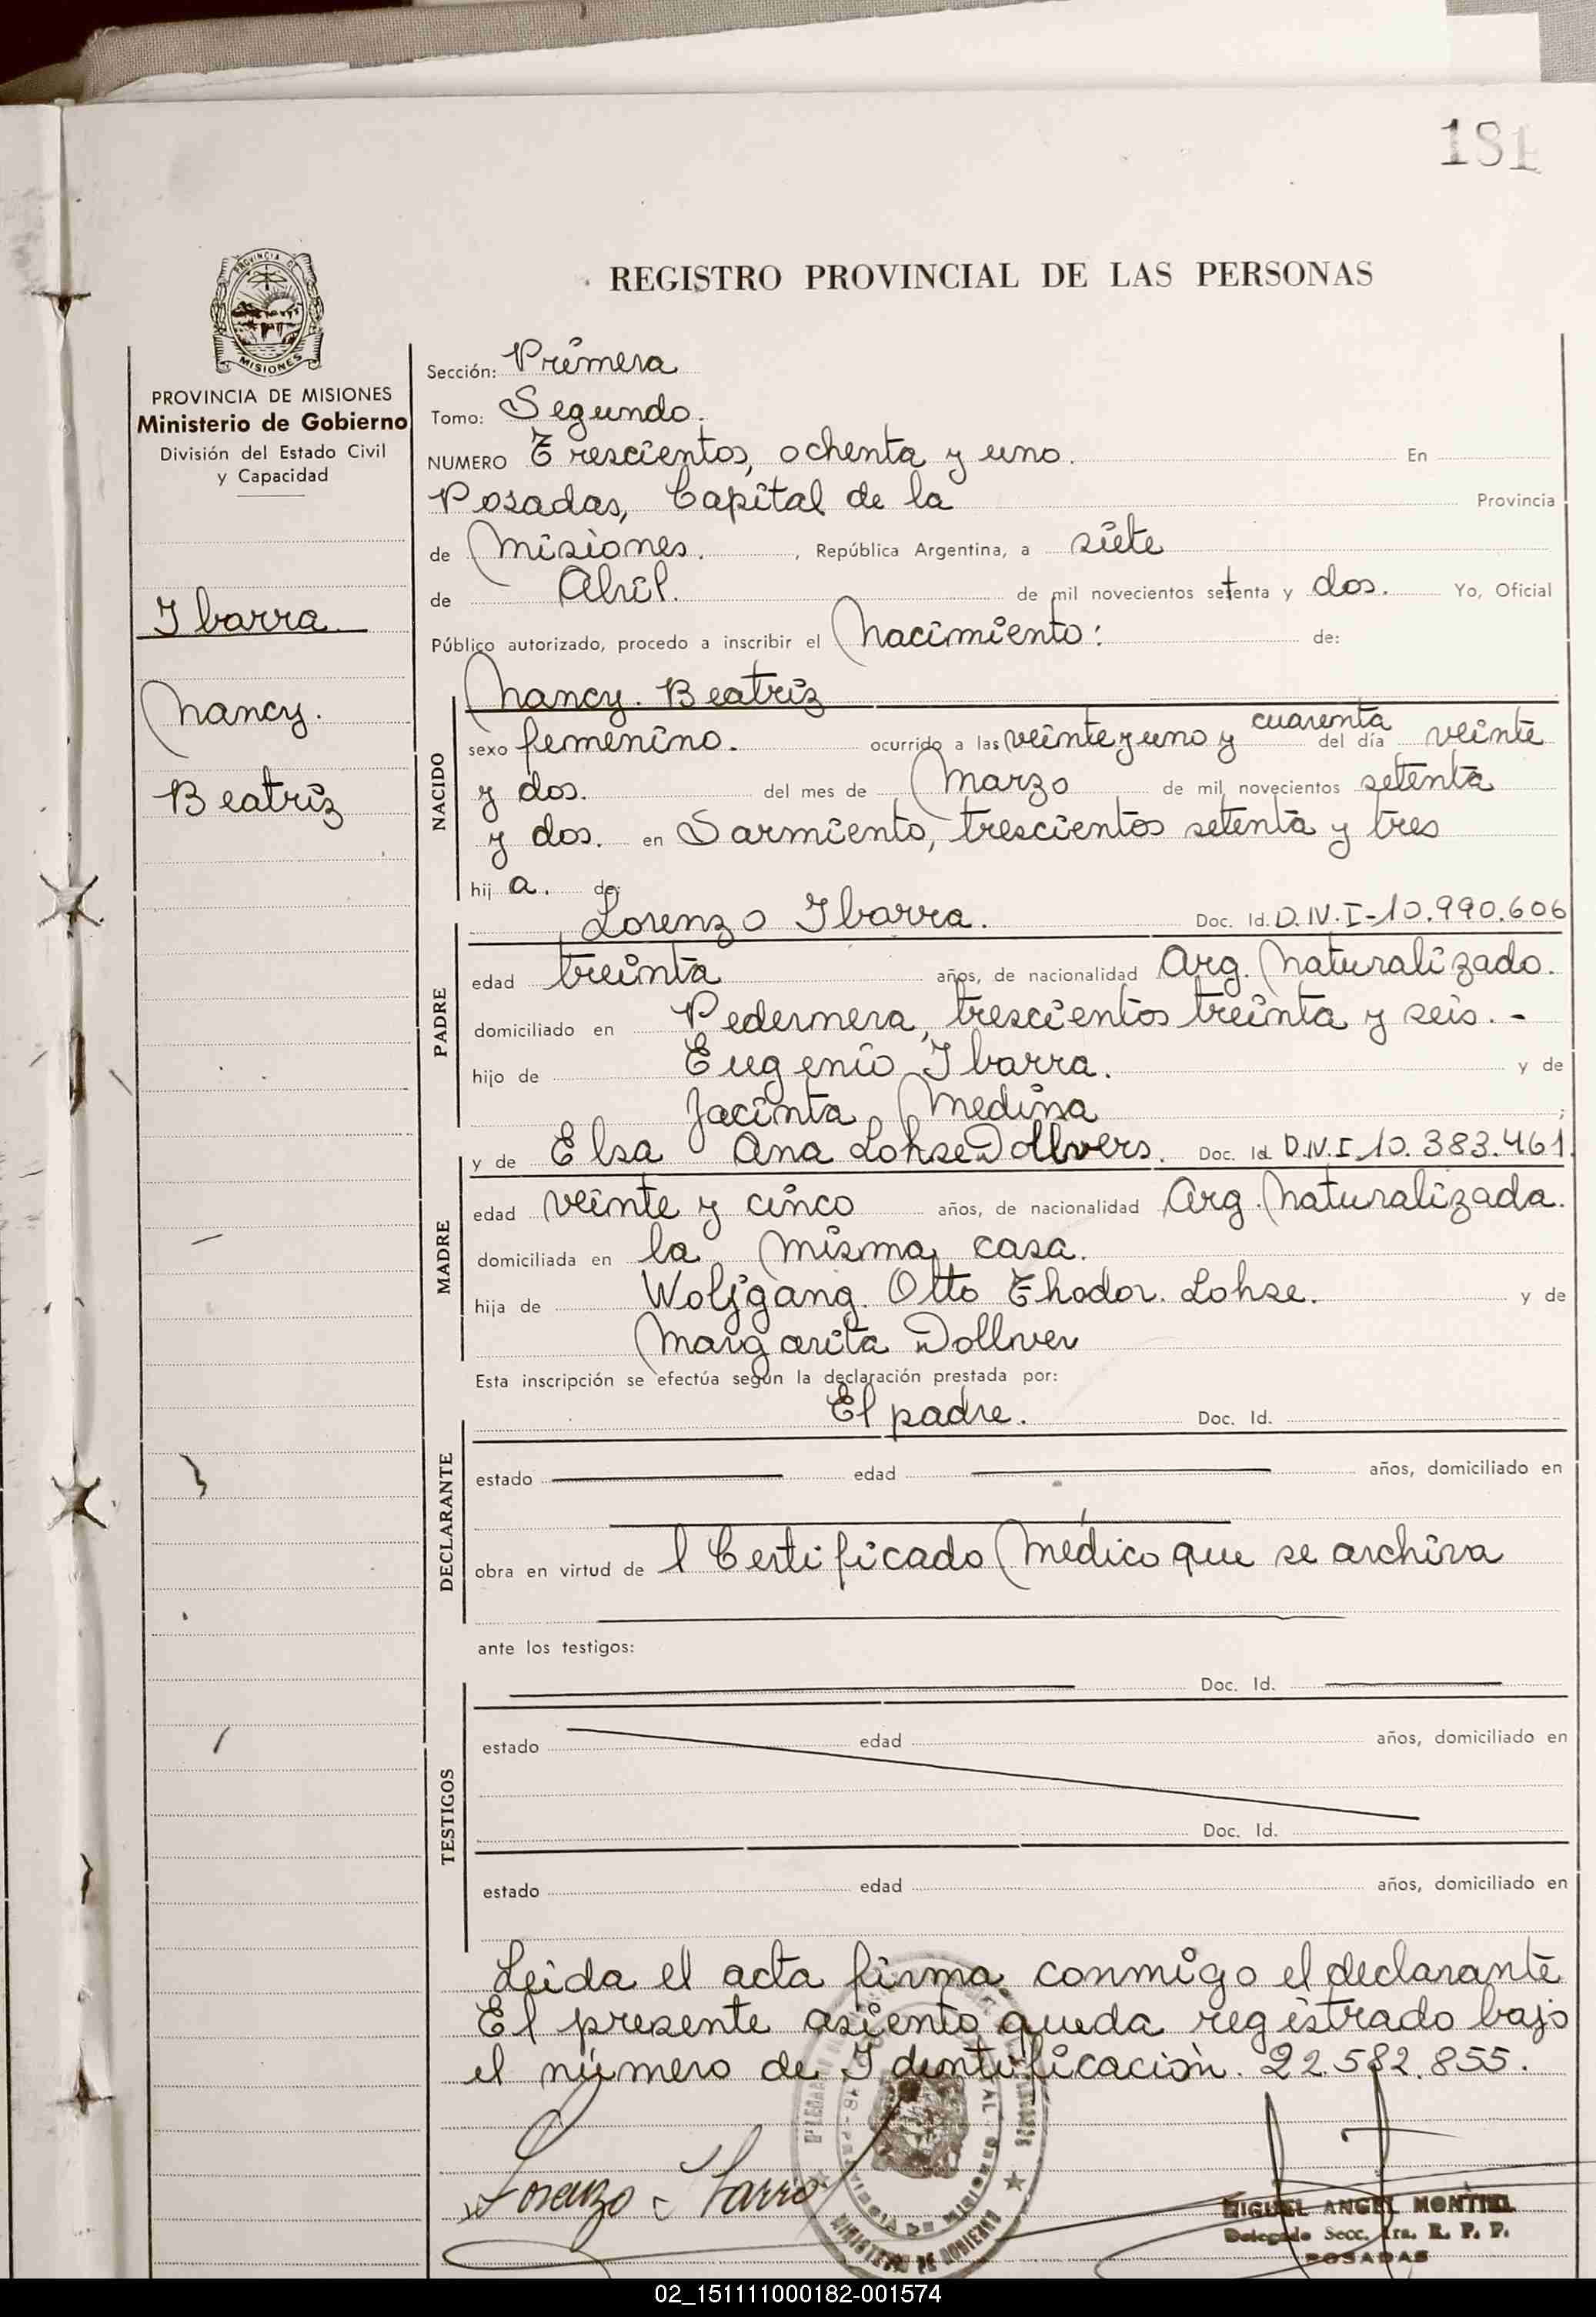 181
REGISTRO PROVINCIAL DE LAS PERSONAS
PROVINCIA DE
MISIONES
PROVINCIA DE MISIONES
Ministerio de Gobierno
División del Estado Civil
y Capacidad
Ibarra
Nancy.
Beatriz
Sección: Primera
Tomo: Segundo.
NUMERO Trescientos, ochenta y uno. En
Posadas, Capital de la Provincia
de Misiones. , República Argentina, a siete
de Abril. de mil novecientos setenta y dos. Yo, Oficial
Público autorizado, procedo a inscribir el Nacimiento: de:
NACIDO
Nancy. Beatriz
sexo femenino. ocurrido a las veinte y uno y cuarenta del día veinte
y dos. del mes de Marzo de mil novecientos setenta
y dos. en Sarmiento, trescientos setenta y tres
hij a. de:
PADRE
Lorenzo Ibarra. Doc. Id. D.N.I-10.990.606
edad treinta años, de nacionalidad Arg. Naturalizado.
domiciliado en Pedernera, trescientos treinta y seis. -
hijo de Eugenio Ibarra. y de
Jacinta Medina ;
MADRE
y de Elsa Ana Lohse Dollvers. Doc. Id. D.N.I.10.383.461
edad veinte y cinco años, de nacionalidad Arg. Naturalizada.
domiciliada en la misma casa.
hija de Wolfgang. Otto Thodor. Lohse. y de
Margarita Dollver
Esta inscripción se efectúa según la declaración prestada por:
DECLARANTE
El padre. Doc. Id.
estado edad años, domiciliado en
obra en virtud de l Certificado Médico que se archiva
ante los testigos:
TESTIGOS
Doc. Id.
estado edad años, domiciliado en
Doc. Id.
estado edad años, domiciliado en
Leida el acta firma conmigo el declarante
El presente asiento queda registrado bajo
el número de Identificación. 22.582.855.
Lorenzo
MINISTERIO DE GOBIERNO
MIGUEL ANGEL MONTIEL
Delegado Secc. 1ra. R. P. P.
POSADAS
02_151111000182-001574